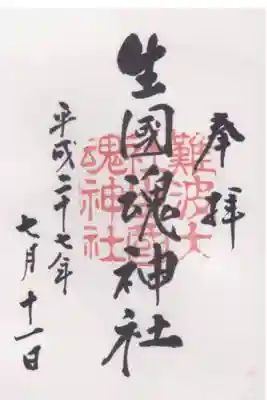 奉拝
生國魂神社
難波大
魂神社
平成二十七年
七月十一日